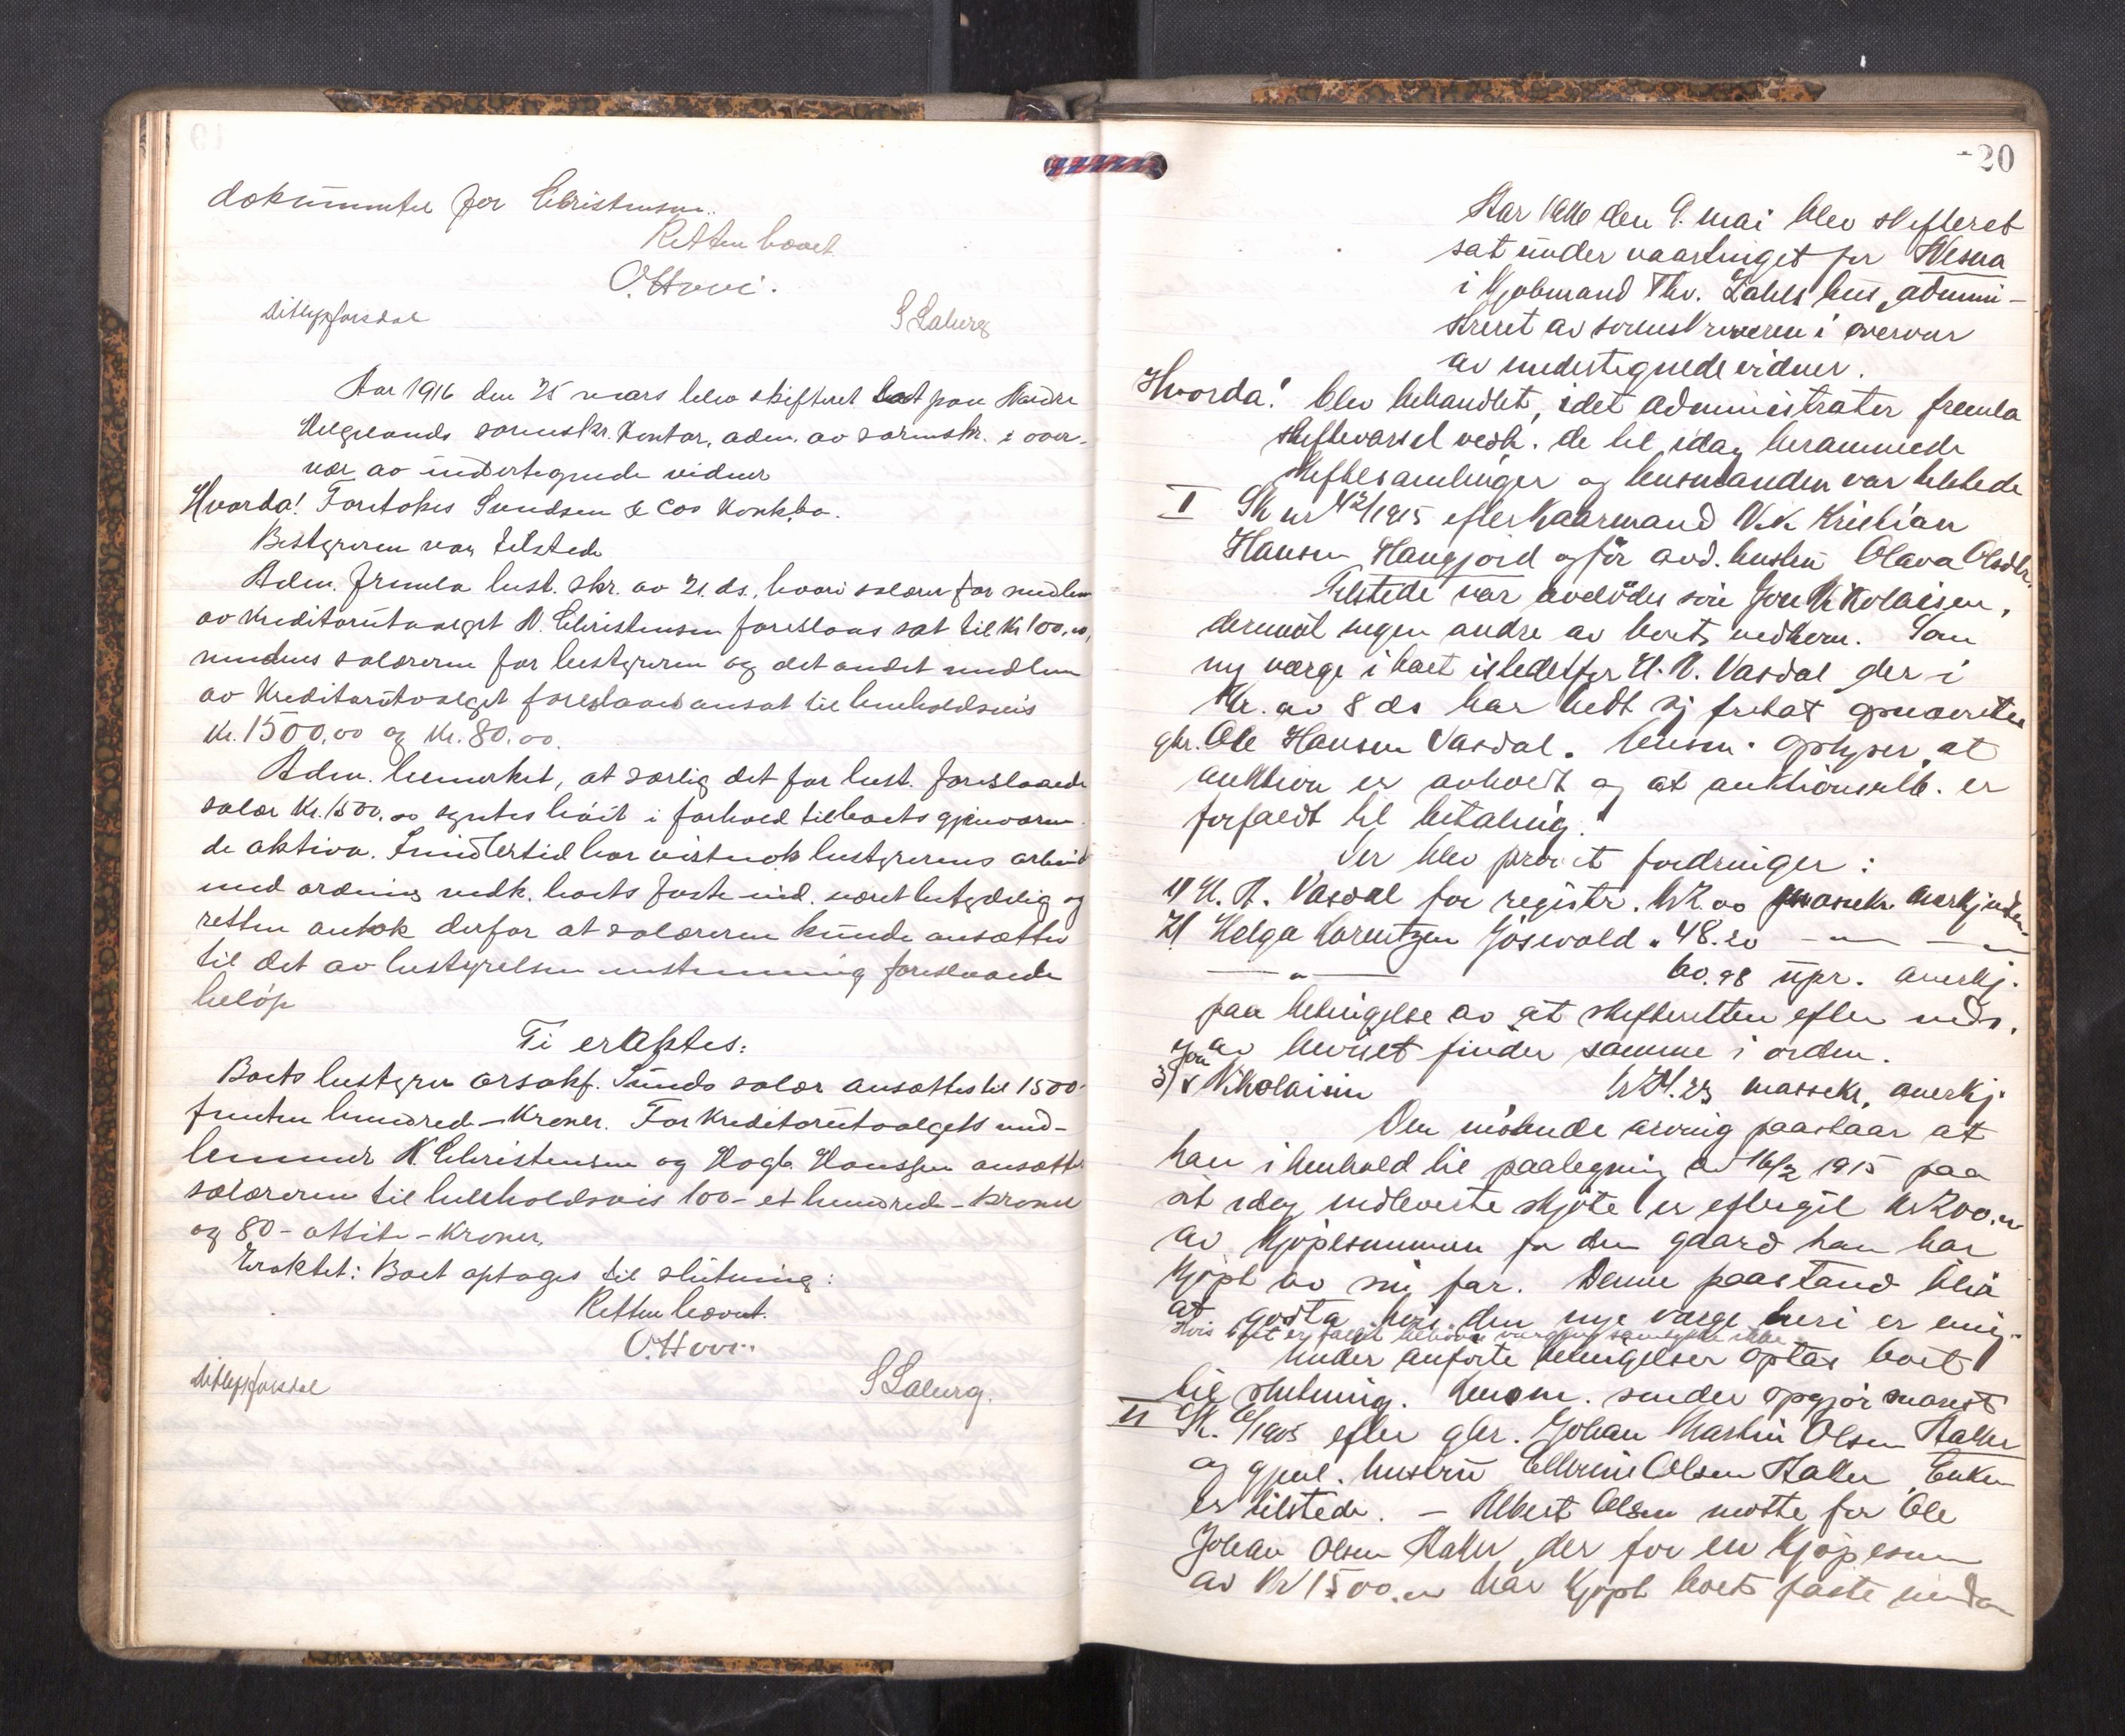 dokumenter for Christensen.
Retten hævet
O. Hovi.
Ditlefforsdal S Laberg
Aar 1916 den 25 mars blev skifteret sat paa Nordre
Helgelands sorenskr. kontor, adm. av sorenskr. i over-
vær av undertegnede vidner
Hvorda! Foretokes Svendsen & Cos konkbo.
Bestyreren var tilstede
Adm. fremla best. skr. av 21. ds., hvori salær for medlem
av kreditorutvalget N. Christensen foreslaas sat til kr 100,00,
mendens salærerne for bestyreren og det andet medlem
av kreditorutvalget foreslaaes ansat til henholdsvis
kr. 1500,00 og kr. 80,00.
Adm. bemerket, at særlig det for best. foreslaaede
salær kr. 1500,00 syntes høit i forhold til boets gjenværen-
de aktiva. Imidlertid har vistnok bestyrerens arbeid
med ordning vedk. boets faste eiend. været betydelig og
retten antok derfor at salærerne kunde ansættes
til det av bestyrelsen enstemmig foreslaaede
beløp
Ti eraktes:
Boets bestyrer orsakf. Sunds salær ansættes til 1500-
femten hundrede - kroner. For kreditorutvalgets med-
lemmer N. Christensen og Hagb. Hanssen ansættes
salærerne til henholdsvis 100 - et hundrede - kroner
og 80 - otteti - kroner.
Eraktet: Boet optages til slutning:
Retten hævet.
O. Hovi.
Ditlefforsdal S Laberg.
20
Aar 1916 den 9. mai blev skifteret
sat under vaartinget for Nesna
i kjøbmand Thv. Zahls hus, admini-
streret av sorenskriveren i overvær
av undertegnede vidner.
Hvorda! blev behandlet, idet administrator fremla
skiftevarsel vedk. de til idag berammede
skiftesamlinger og lensmanden var tilstede
I Sk nr 42/1915 efter kaarmand Nik Kristian
Hansen Haugjord og før avd. hustru Olava Olsdtr.
Tilstede var avdødes søn Jon Nikolaisen,
derimot ingen andre av boets vedkom. Som
ny værge i boet istedetfor H. A. Vasdal der i
skr. av 8 ds har bedt sig fritat opnævntes
gbr. Ole Hansen Vasdal. lensm. oplyser, at
auktion er avholdt og at auktionsbelb. er
forfaldt til betaling.
Der blev prøvet fordringer:
1) H. A. Vasdal for registr. kr 2.00 massekr. anerkjendes
2) Helga Lorentzen Jøsevold " 48.20 — " — — " —
— " — 60.98 upr. anerkj.
paa betingelse av at skifteretten efter inds.
av beviset finder samme i orden.
3) Jon Nikolaisen kr 24.23 massekr. anerkj.
Den møtende arving paastaar at
han i henhold til paategning av 16/2 1915 paa
sit idag indleverte skjøte er eftergit kr 200.00
av kjøpesummen for den gaard han har
kjøpt av sin far. Denne paastand blir
at godta hvis den nye værge heri er enig.
Under anførte betingelser optas boet
til slutning. lensm. sender opgjør snarest
II Sk. 6/1905 efter gbr. Johan Martin Olsen Haller
og gjenl. hustru Ellerine Olsen Haller. Enken
er tilstede. - Albert Olsen møtte for Ole
Johan Olsen Haller, der for en kjøpesum
av kr 1500.00 har kjøpt boets faste eiendom